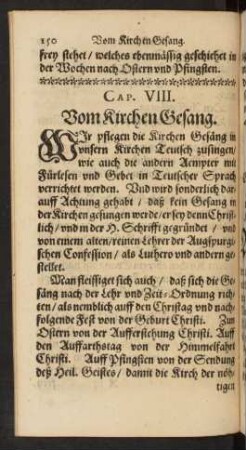 150 Vom Kirchen Gesang.
frey stehet / welches ebenmässig geschiehet in
der Wochen nach Ostern vnd Pfingsten.
CAP. VIII.
Vom Kirchen Gesang.
WJr pflegen die Kirchen Gesäng in
vnsern Kirchen Teutsch zusingen /
wie auch die andern Aempter mit
Fürlesen vnd Gebet in Teutscher Sprach
verrichtet werden. Vnd wird sonderlich dar-
auff Achtung gehabt / daß kein Gesang in
der Kirchen gesungen werde / er sey denn Christ-
lich / vnd in der H. Schrifft gegründet / vnd
von einem alten / reinen Lehrer der Augspurgi-
schen Confession / als Luthero vnd andern ge-
stellet.
Man fleissiget sich auch / daß sich die Ge-
säng nach der Lehr vnd Zeit-Ordnung rich-
ten / als nemblich auff den Christag vnd nach-
folgende Fest von der Geburt Christi. Zun
Ostern von der Aufferstehung Christi. Auff
den Auffarthstag von der Himmelfahrt
Christi. Auff Pfingsten von der Sendung
deß Heil. Geistes / damit die Kirch der nöh-
tigen